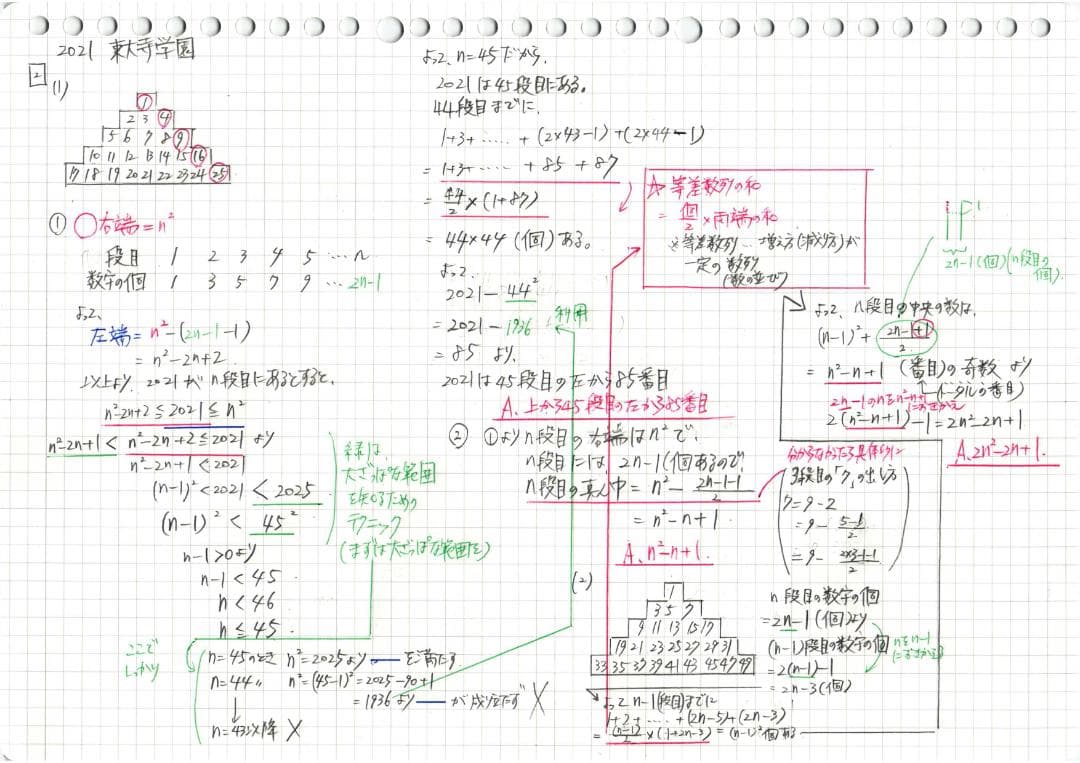 2021 東大寺学園
2
(1)
1
2 3 4
5 6 7 8 9
10 11 12 13 14 15 16
17 18 19 20 21 22 23 24 25
① ○右端=n²
段目 1 2 3 4 5 … n
数字の個 1 3 5 7 9 … 2n-1
よって、
左端= n²-(2n-1-1)
= n²-2n+2.
以上より、2021がn段目にあるとすると、
n²-2n+2≦2021≦n²
n²-2n+1 < n²-2n+2≦2021 より
n²-2n+1<2021
(n-1)²<2021 < 2025
(n-1)² < 45²
n-1>0より
n-1 < 45
n < 46
n ≦ 45.
緑は、
大ざっぱな範囲
を知るための
テクニック
(まずは大ざっぱな範囲を)
ここで
しっかり
n=45のとき n²=2025より ― を満たす
n=44〃 n²=(45-1)²=2025-90+1
=1936より ― が成立たず X
↓
n=43以降 X
よって、n=45だから、
2021は45段目にある。
44段目までに、
1+3+……+(2×43-1)+(2×44-1)
= 1+3+…… +85+87
= 44/2 ×(1+87)
= 44×44 (個)ある。
よって、
2021-44²
= 2021-1936 利用
= 85 より、
2021は45段目の左から85番目
A. 上から45段目の左から85番目
☆等差数列の和
= 個/2 ×両端の和
※等差数列…増え方(減り方)が
一定の数列
(数の並び)
② ①よりn段目の右端はn²で、
n段目には、2n-1(個)あるので、
n段目の真ん中 = n²- (2n-1-1)/2
= n²-n+1.
A. n²-n+1.
分からなかったら具体的に
3段目の「7」の出し方
7=9-2
=9- (5-1)/2
=9- (2×3-1-1)/2
(2)
1
3 5 7
9 11 13 15 17
19 21 23 25 27 29 31
33 35 37 39 41 43 45 47 49
n段目の数字の個
=2n-1(個)より
(n-1)段目の数字の個
=2(n-1)-1
=2n-3(個)
nをn-1
におきかえる
よってn-1(段目)までに
1+2+……+(2n-5)+(2n-3)
= (n-1)/2 ×(1+2n-3) = (n-1)²個ある
2n-1(個)(n段目の
個)
よって、n段目の中央の数は、
(n-1)²+ (2n-1+1)/2
= n²-n+1 (番目)の奇数 より
(トータルの番目)
2n-1のnをn²-n+1
におきかえ
2(n²-n+1)-1=2n²-2n+1
A. 2n²-2n+1.